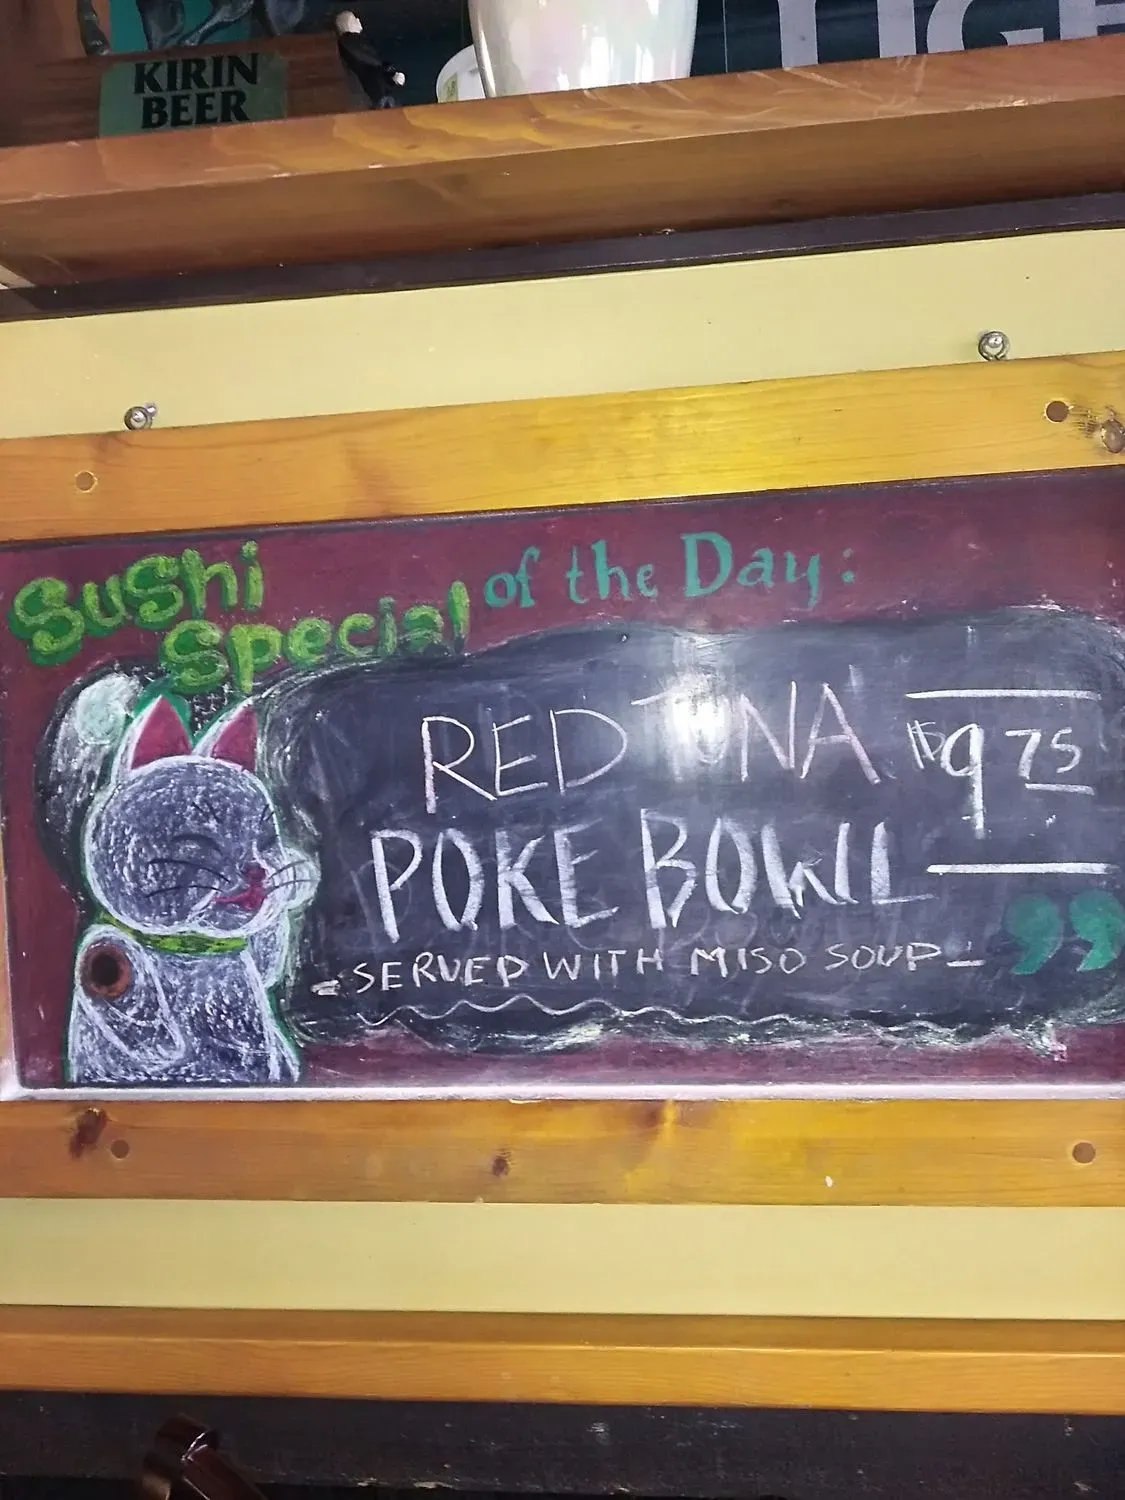 KIRIN
BEER
Sushi
Special of the Day:
RED TUNA $9.75
POKE BOWL
-SERVED WITH MISO SOUP-